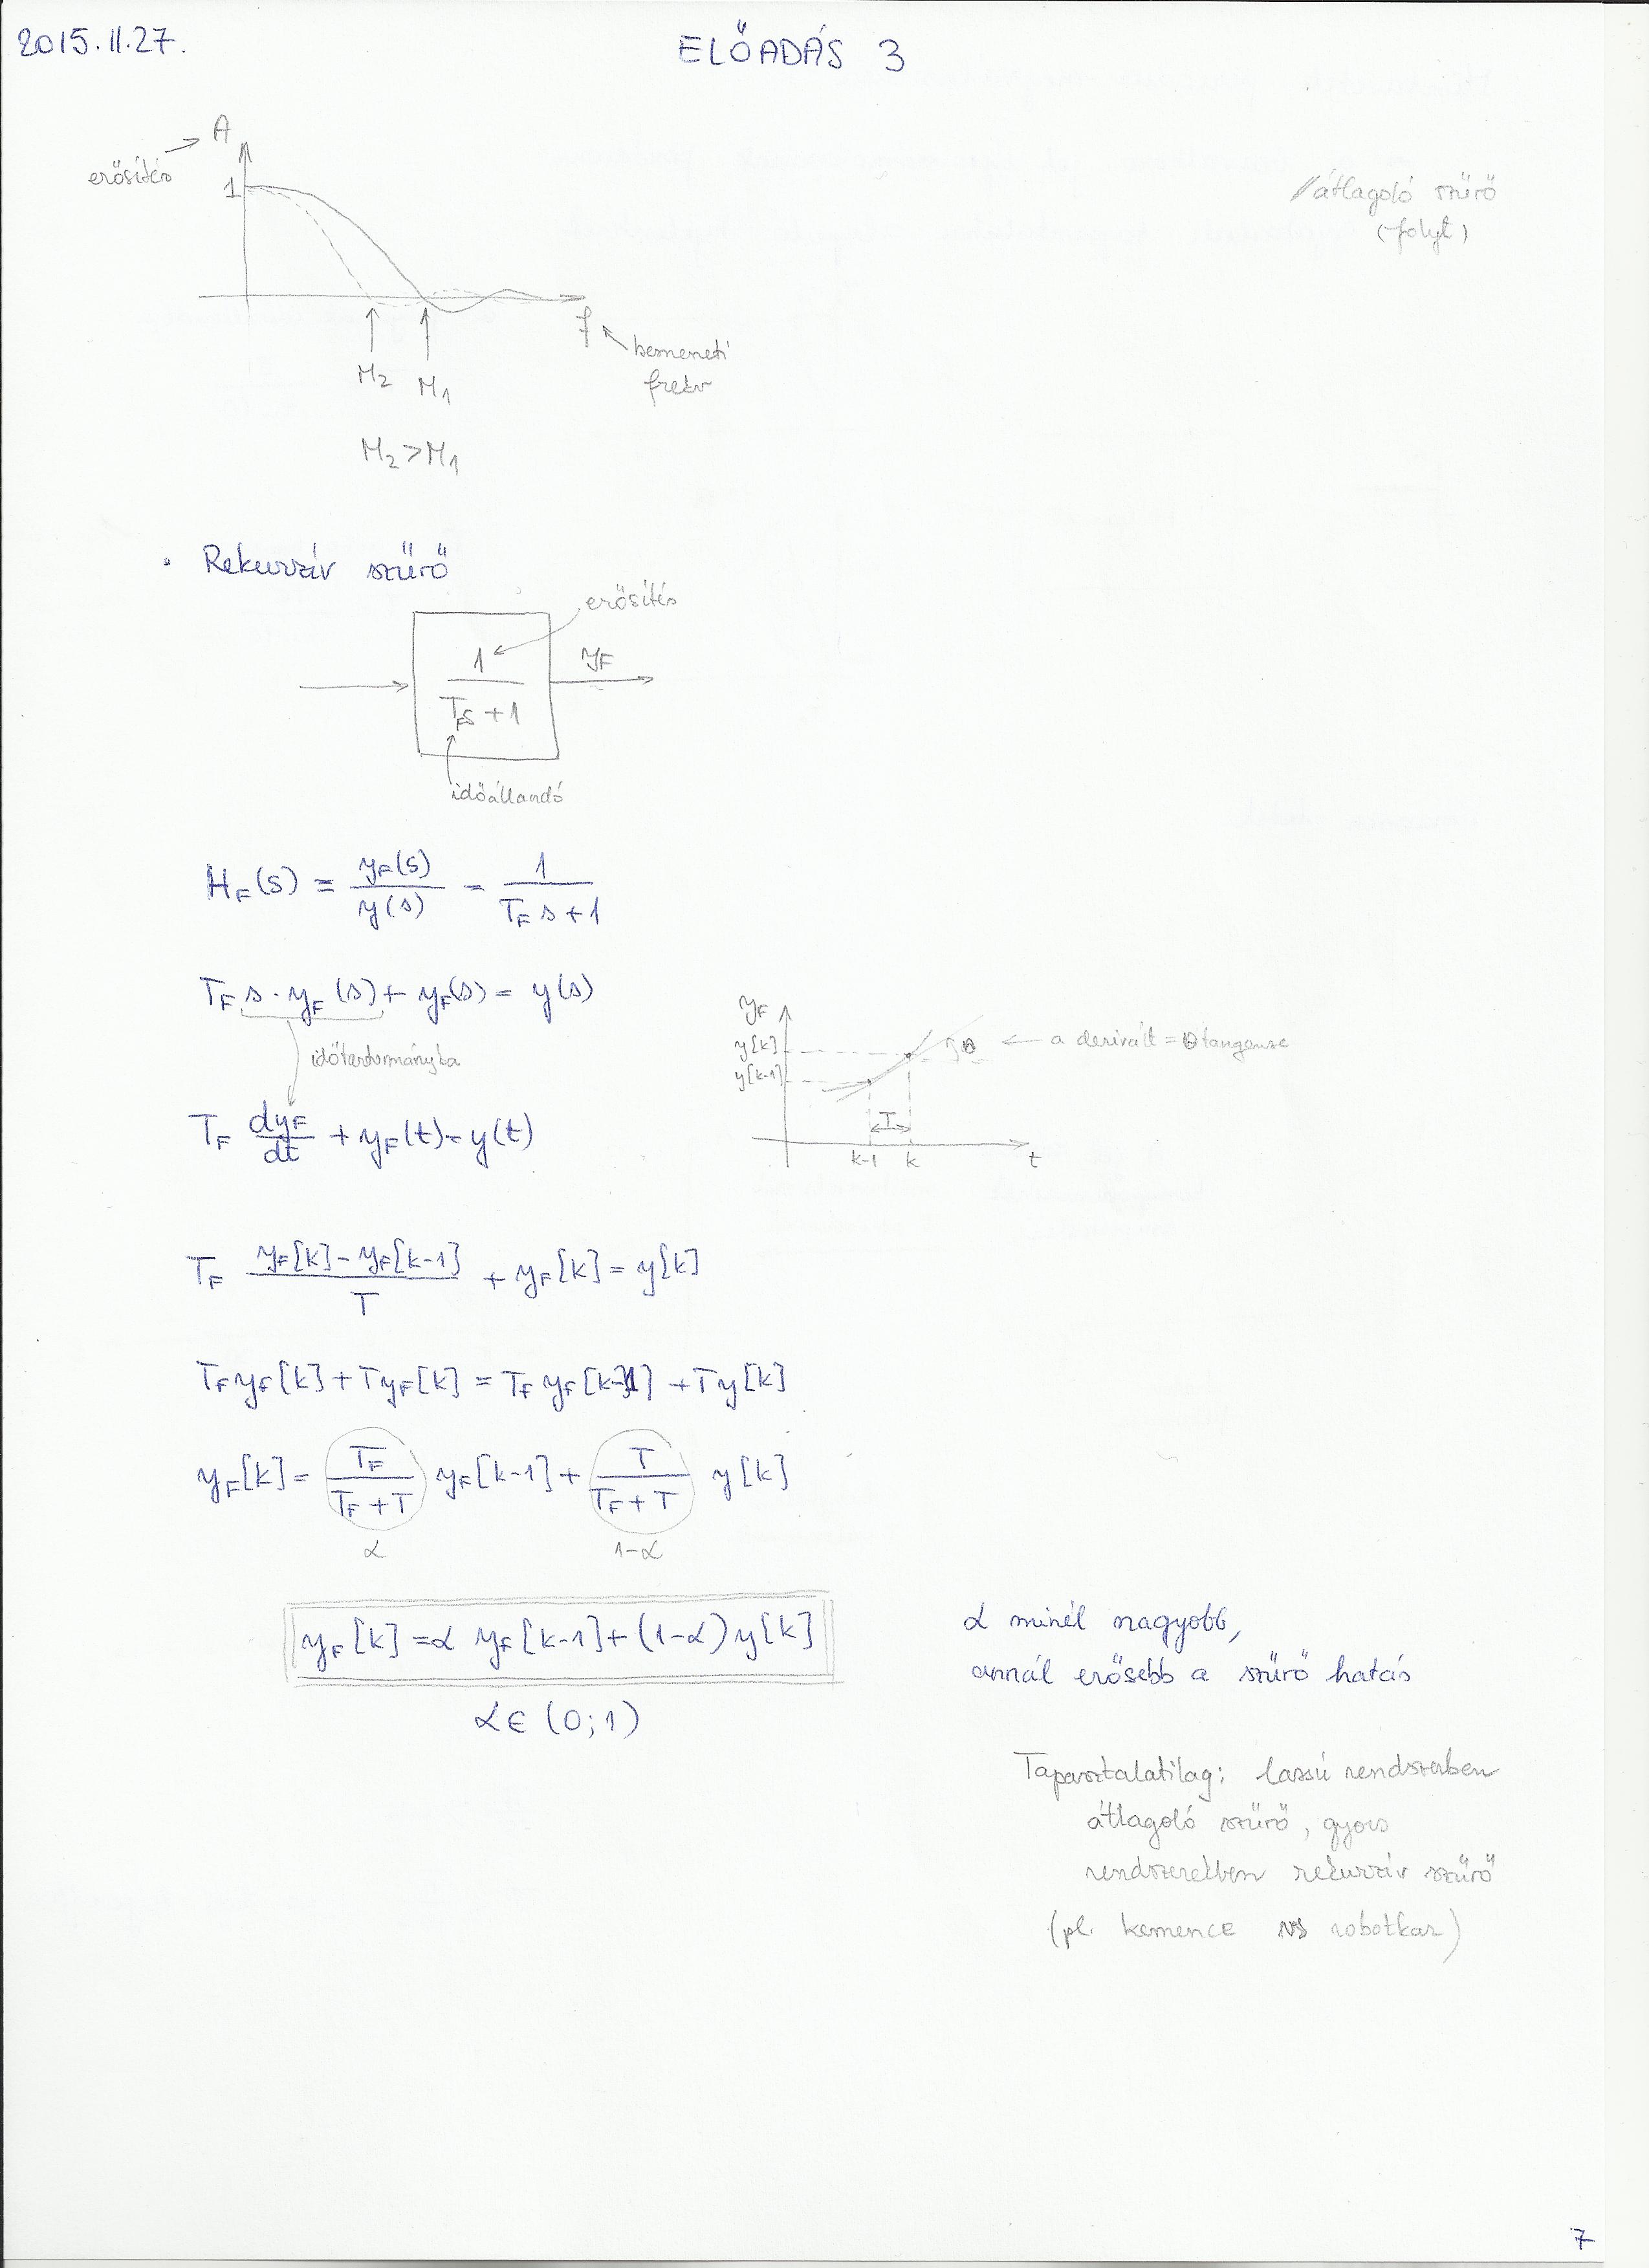 2015.11.27.
ELŐADÁS 3
A
erősítés
1
átlagoló szűrő
(folyt)
f
bemeneti
frekv
M₂ M₁
M₂>M₁
• Rekurzív szűrő
erősítés
1
y_F
T_F s+1
időállandó
H_F(s) = y_F(s)/y(s) = 1/(T_F s+1)
T_F s·y_F(s)+y_F(s)=y(s)
időtartományba
y_F
y[k]
θ ← a derivált = θ tangense
y[k-1]
T
k-1 k t
T_F dy_F/dt + y_F(t)=y(t)
T_F (y_F[k]-y_F[k-1])/T + y_F[k]=y[k]
T_F y_F[k]+T y_F[k] = T_F y_F[k-1]+T y[k]
y_F[k]= T_F/(T_F+T) y_F[k-1]+ T/(T_F+T) y[k]
α 1-α
y_F[k]=α y_F[k-1]+(1-α)y[k]
α∈(0;1)
α minél nagyobb,
annál erősebb a szűrő hatás
Tapasztalatilag: lassú rendszerben
átlagoló szűrő, gyors
rendszerekben rekurzív szűrő
(pl. kemence vs robotkar)
7